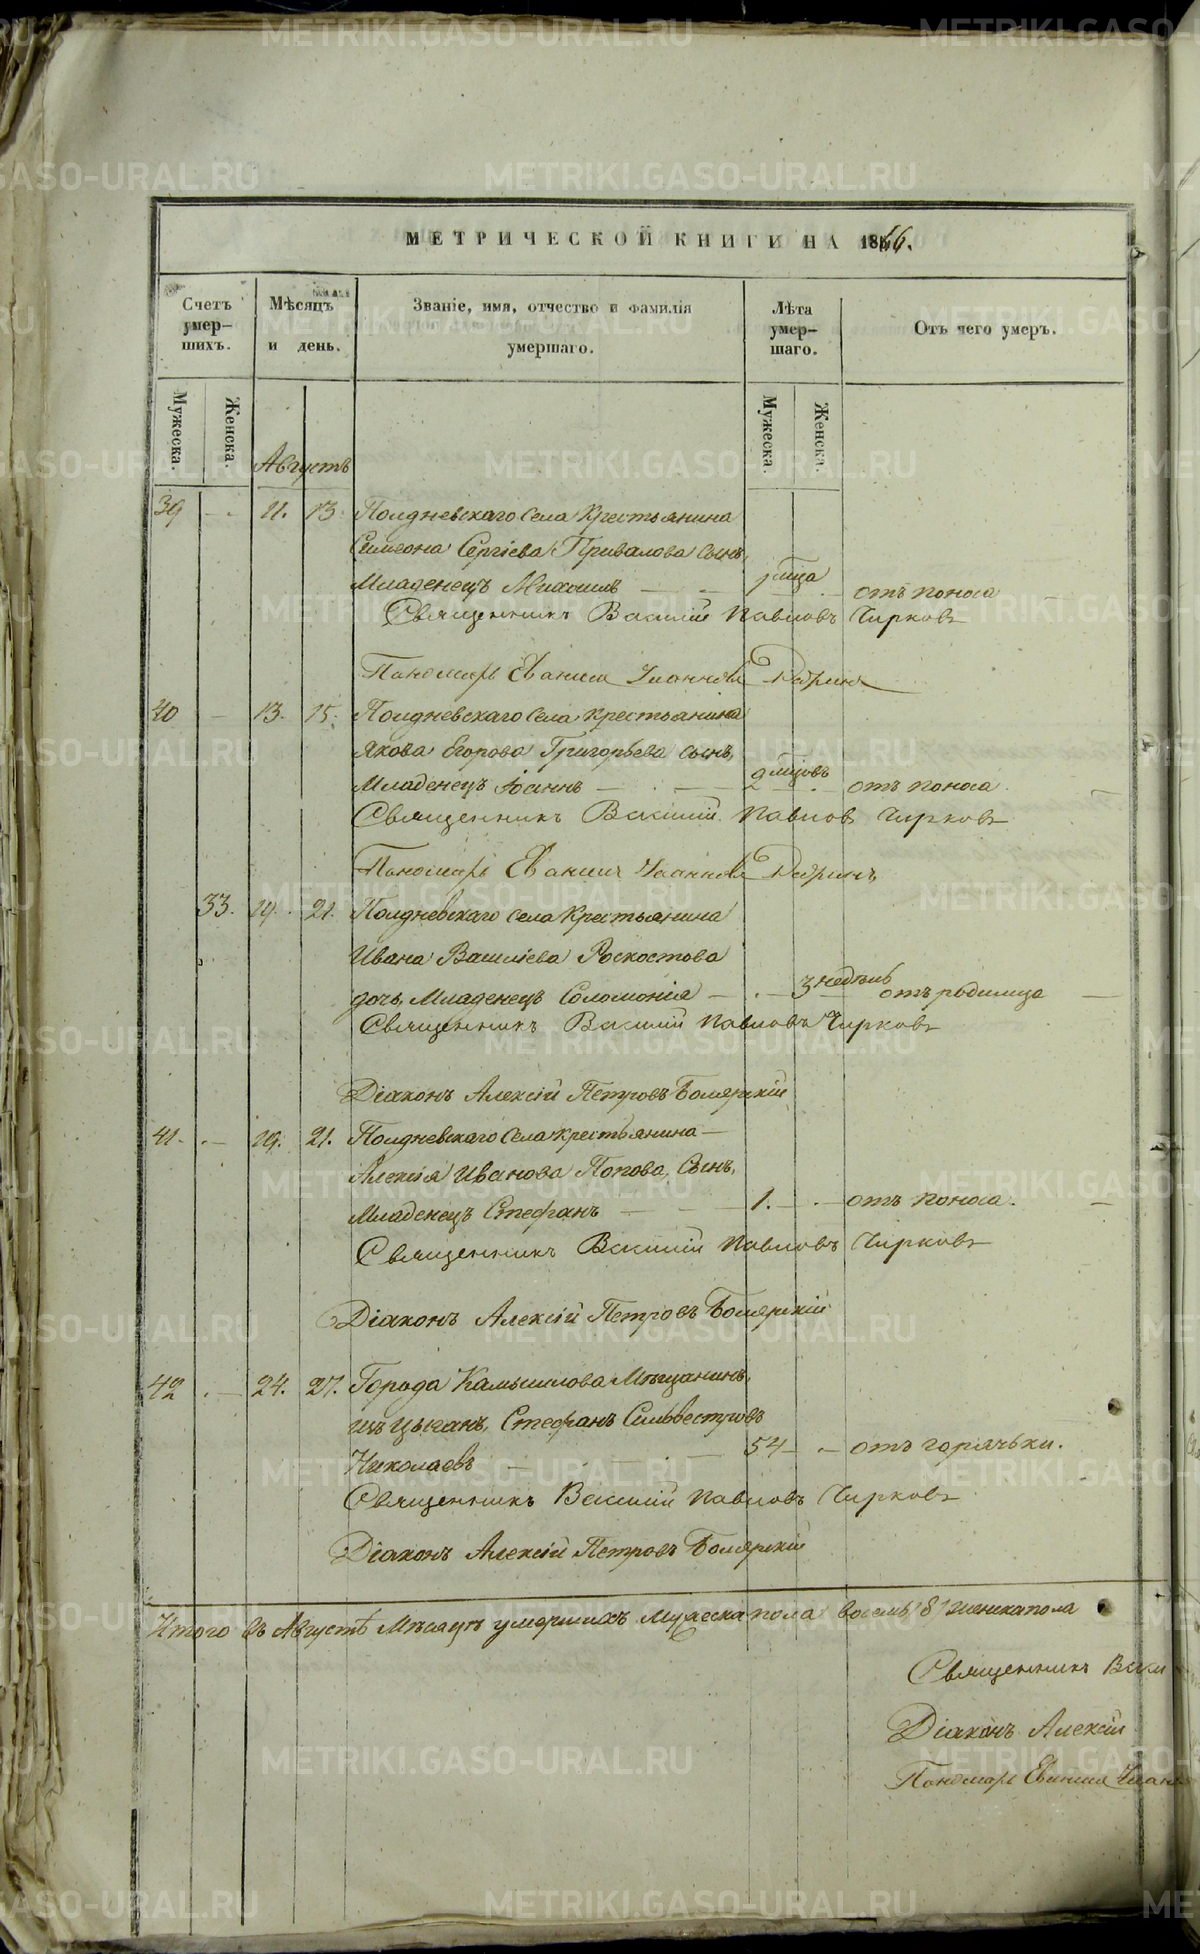 МЕТРИЧЕСКОЙ КНИГИ НА 1866.
Счетъ умер-шихъ.
Мѣсяцъ и день.
Званіе, имя, отчество и фамилія умершаго.
Лѣта умер-шаго.
Отъ чего умеръ.
Мужеска. Женска. Мужеска. Женска.
Августъ
39 11. 13. Полдневскаго села Крестьянина
Симеона Сергіева Привалова сынъ,
Младенецъ Михаилъ отъ поноса
Священникъ Василій Павловъ Чирковъ
Пономарь
40 13. 15. Полдневскаго села Крестьянина
Якова Егорова Григорьева сынъ,
Младенецъ Іоаннъ 2 мѣсяцовъ отъ поноса.
Священникъ Василій Павлов Чирковъ
Пономарь
33. 19. 21. Полдневскаго села Крестьянина
Ивана Василіева Роскостова
дочь, Младенецъ Соломонія 3 недѣль отъ родимца
Священникъ Василій Павловъ Чирковъ
Діаконъ Алексій Петровъ Боярскій
41. 19. 21. Полдневскаго села крестьянина
Алексія Иванова Попова, Сынъ,
Младенецъ Стефанъ 1. отъ поноса.
Священникъ Василій Павловъ Чирковъ
Діаконъ Алексій Петровъ Боярскій
42 24. 27. Города Камышлова Мѣщанинъ,
изъ цыганъ, Стефанъ Сильвестровъ
Николаевъ 54 отъ горячьки.
Священникъ Василій Павловъ Чирковъ
Діаконъ Алексій Петровъ Боярскій
Итого въ Августѣ Мѣсяцѣ умершихъ мужеска пола восемь 8 женска пола
Священникъ Васи
Діаконъ Алексій
Пономарь
METRIKI.GASO-URAL.RU